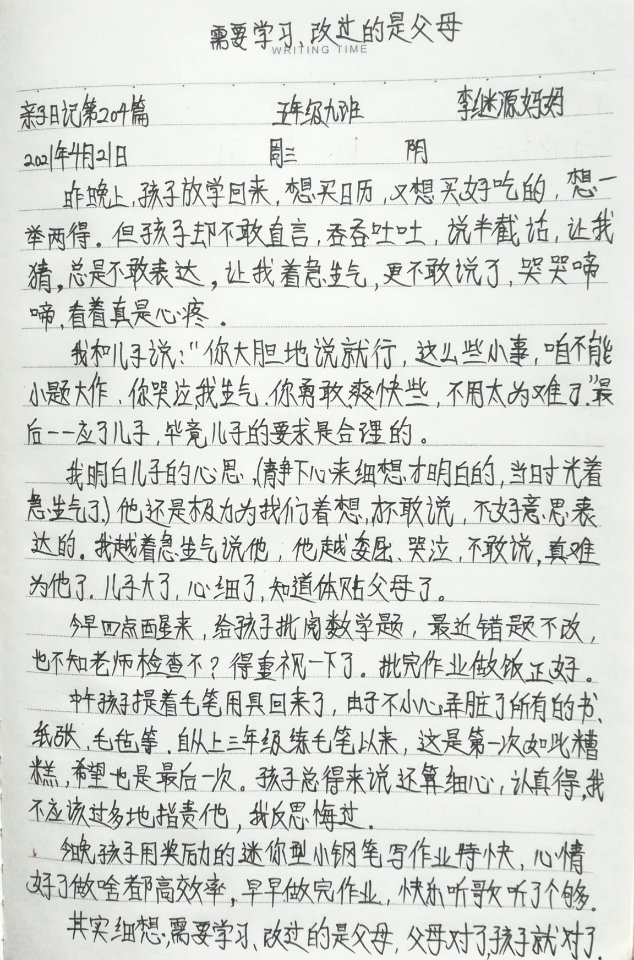 需要学习、改过的是父母
WRITING TIME
亲子日记第204篇 五年级九班 李继源妈妈
2021年4月21日 周三 阴
昨晚上,孩子放学回来,想买日历,又想买好吃的,想一
举两得。但孩子却不敢直言,吞吞吐吐,说半截话,让我
猜,总是不敢表达,让我着急生气,更不敢说了,哭哭啼
啼,看着真是心疼。
我和儿子说:“你大胆地说就行,这么些小事,咱不能
小题大作,你哭泣我生气,你勇敢爽快些,不用太为难了.”最
后一一应了儿子,毕竟儿子的要求是合理的。
我明白儿子的心思,(静下心来细想才明白的,当时光着
急生气了)他还是极力为我们着想,不敢说,不好意思表
达的。我越着急生气说他,他越委屈、哭泣,不敢说,真难
为他了.儿子大了,心细了,知道体贴父母了。
今早四点西醒来,给孩子批阅数学题,最近错题不改,
也不知老师检查不?得重视一下了。批完作业做饭正好。
中午孩子提着毛笔用具回来了,由于不小心弄脏了所有的书、
纸张、毛毡等.自从上三年级练毛笔以来,这是第一次如此糟
糕,希望也是最后一次。孩子总得来说还算细心,认真得,我
不应该过多地指责他,我反思悔过.
今晚孩子用奖励的迷你型小钢笔写作业特快,心情
好了做啥都高效率,早早做完作业,快乐听歌听了个够.
其实细想,需要学习、改过的是父母,父母对了,孩子就对了.